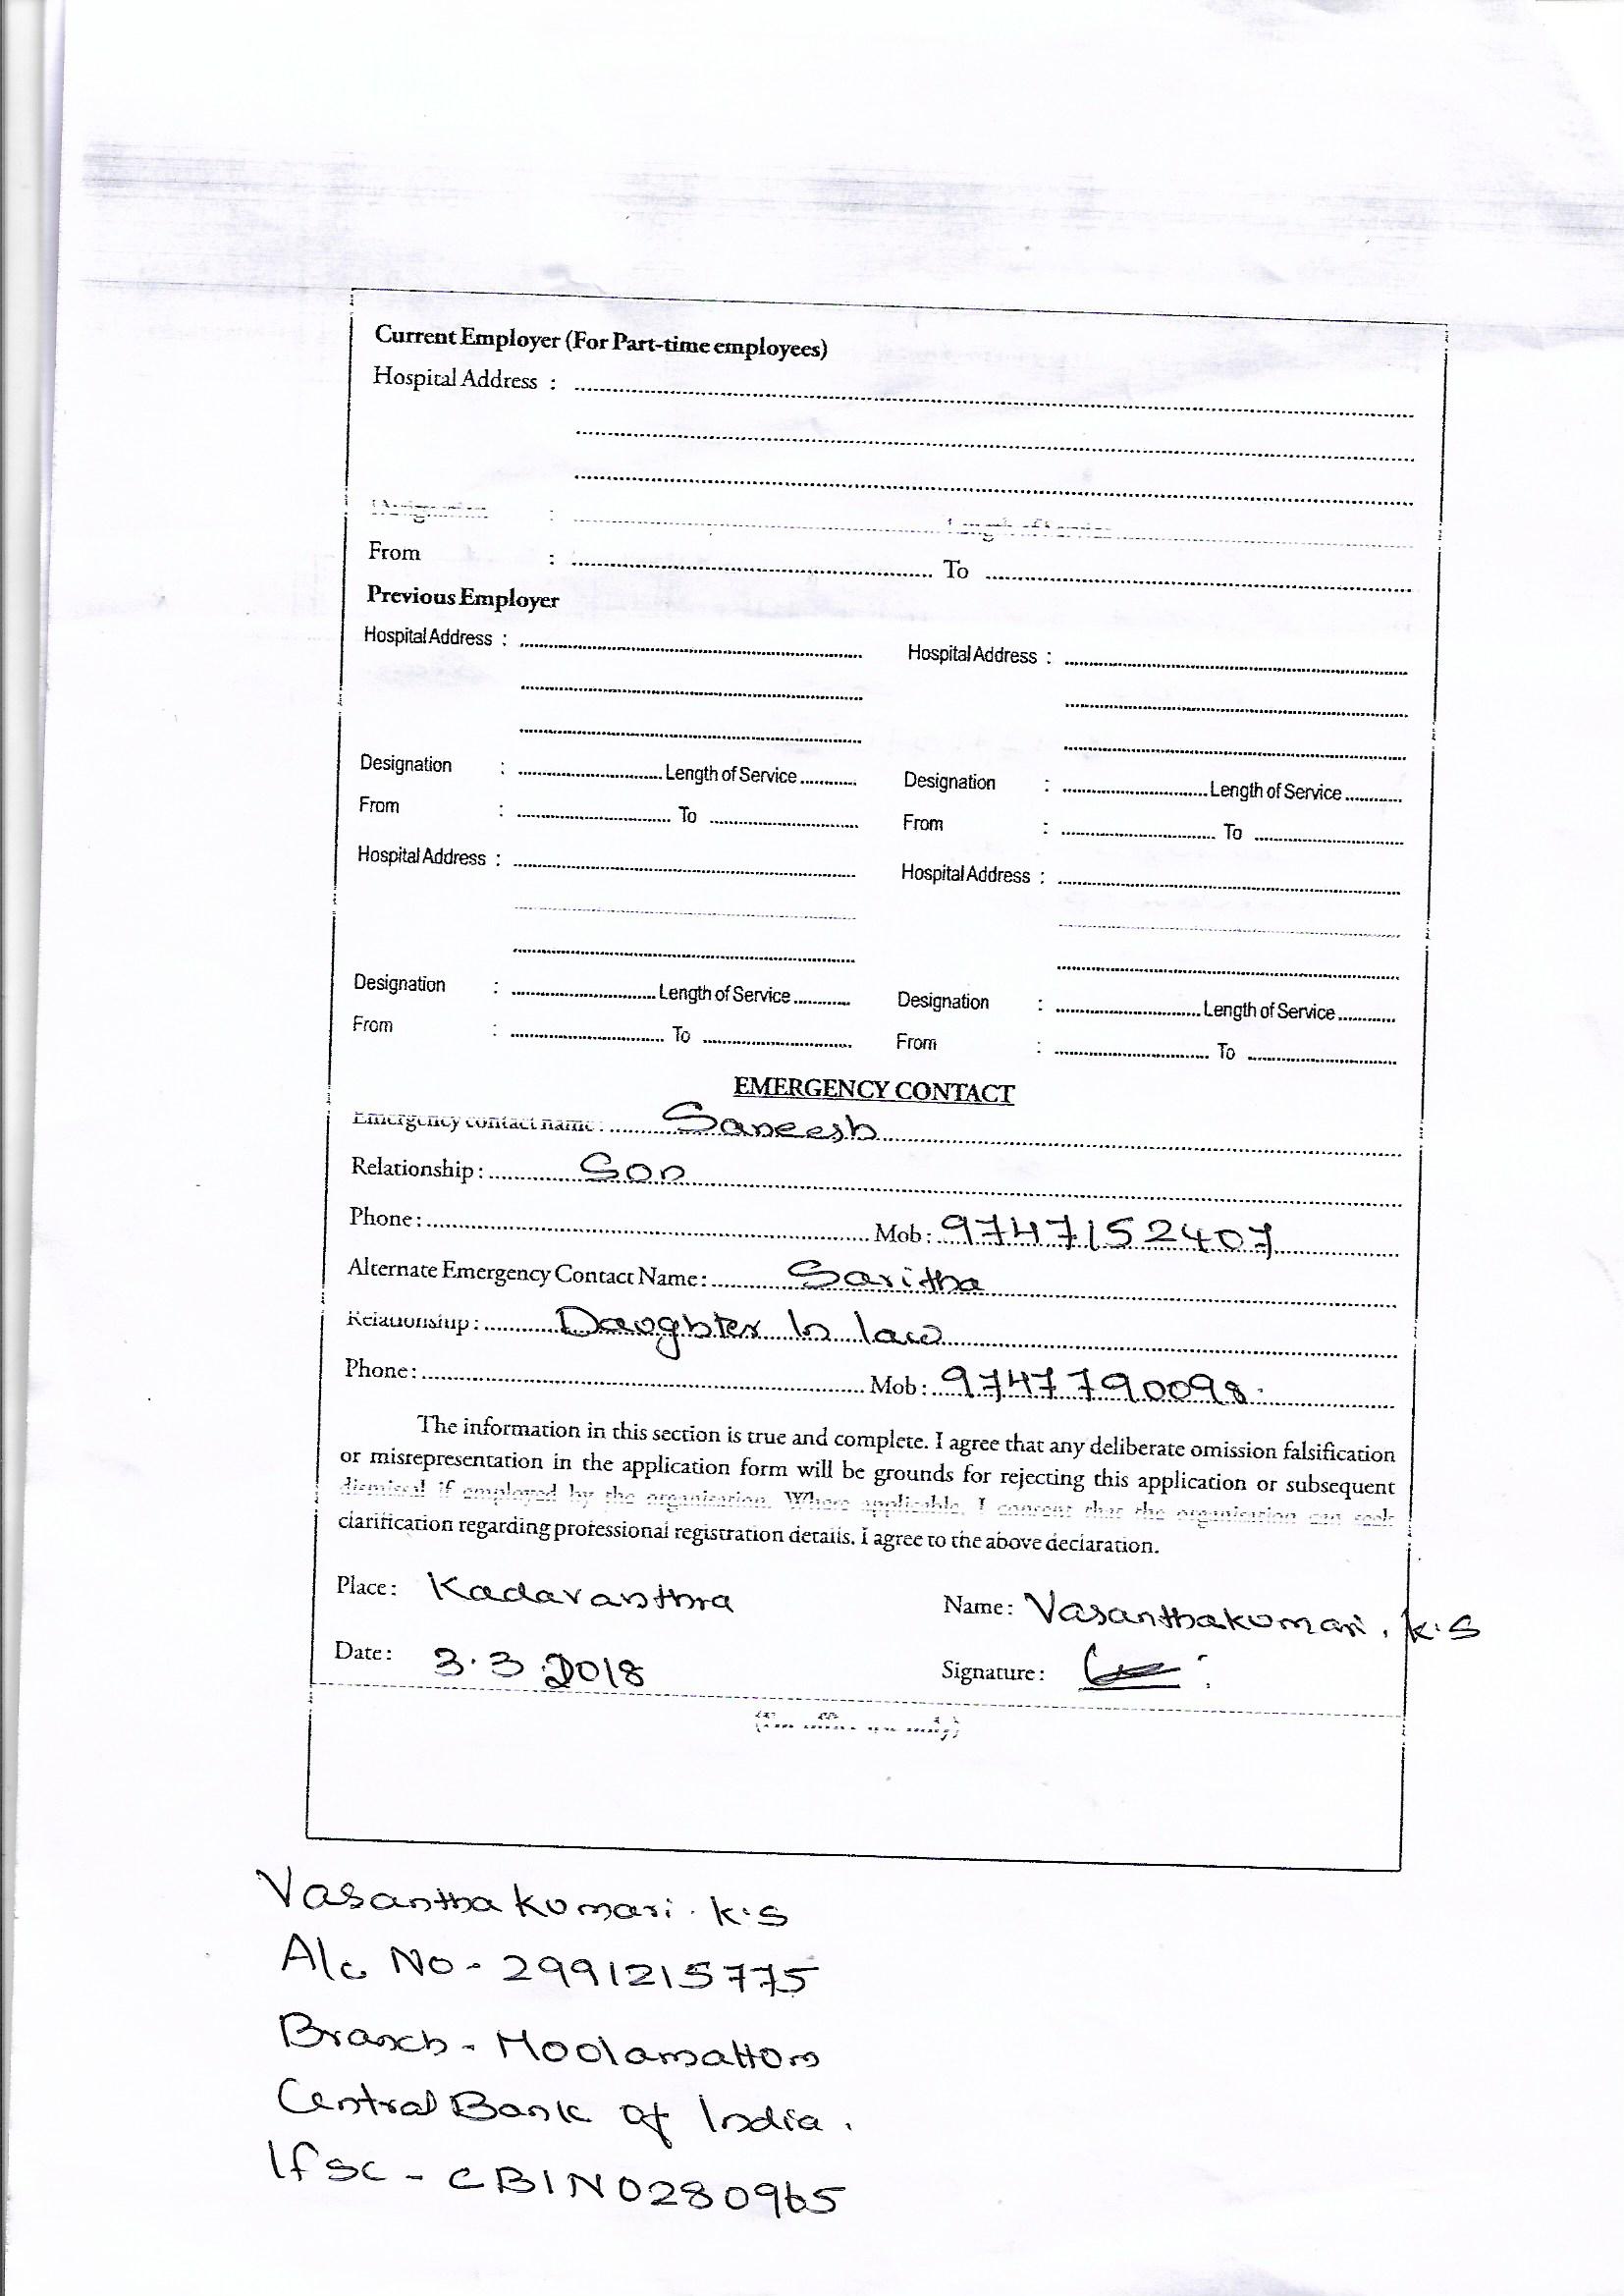 Current Employer (For Part-time employees)
Hospital Address :
Designation : Length of Service
From : To
Previous Employer
Hospital Address : Hospital Address :
Designation : Length of Service Designation : Length of Service
From : To From : To
Hospital Address : Hospital Address :
Designation : Length of Service Designation : Length of Service
From : To From : To
EMERGENCY CONTACT
Emergency contact name : Saneesh
Relationship : Son
Phone : Mob : 9747152407
Alternate Emergency Contact Name : Saritha
Relationship : Daughter In law
Phone : Mob : 9747790098.
The information in this section is true and complete. I agree that any deliberate omission falsification
or misrepresentation in the application form will be grounds for rejecting this application or subsequent
dismissal if employed by the organisation. Where applicable, I consent that the organisation can seek
clarification regarding professional registration details. I agree to the above declaration.
Place : Kadavanthra Name : Vasanthakumari. K.S
Date : 3.3.2018 Signature :
(For office use only)
Vasanthakumari. K.S
A/c No - 2991215775
Branch - Moolamattom
Central Bank of India.
Ifsc - CBIN0280965